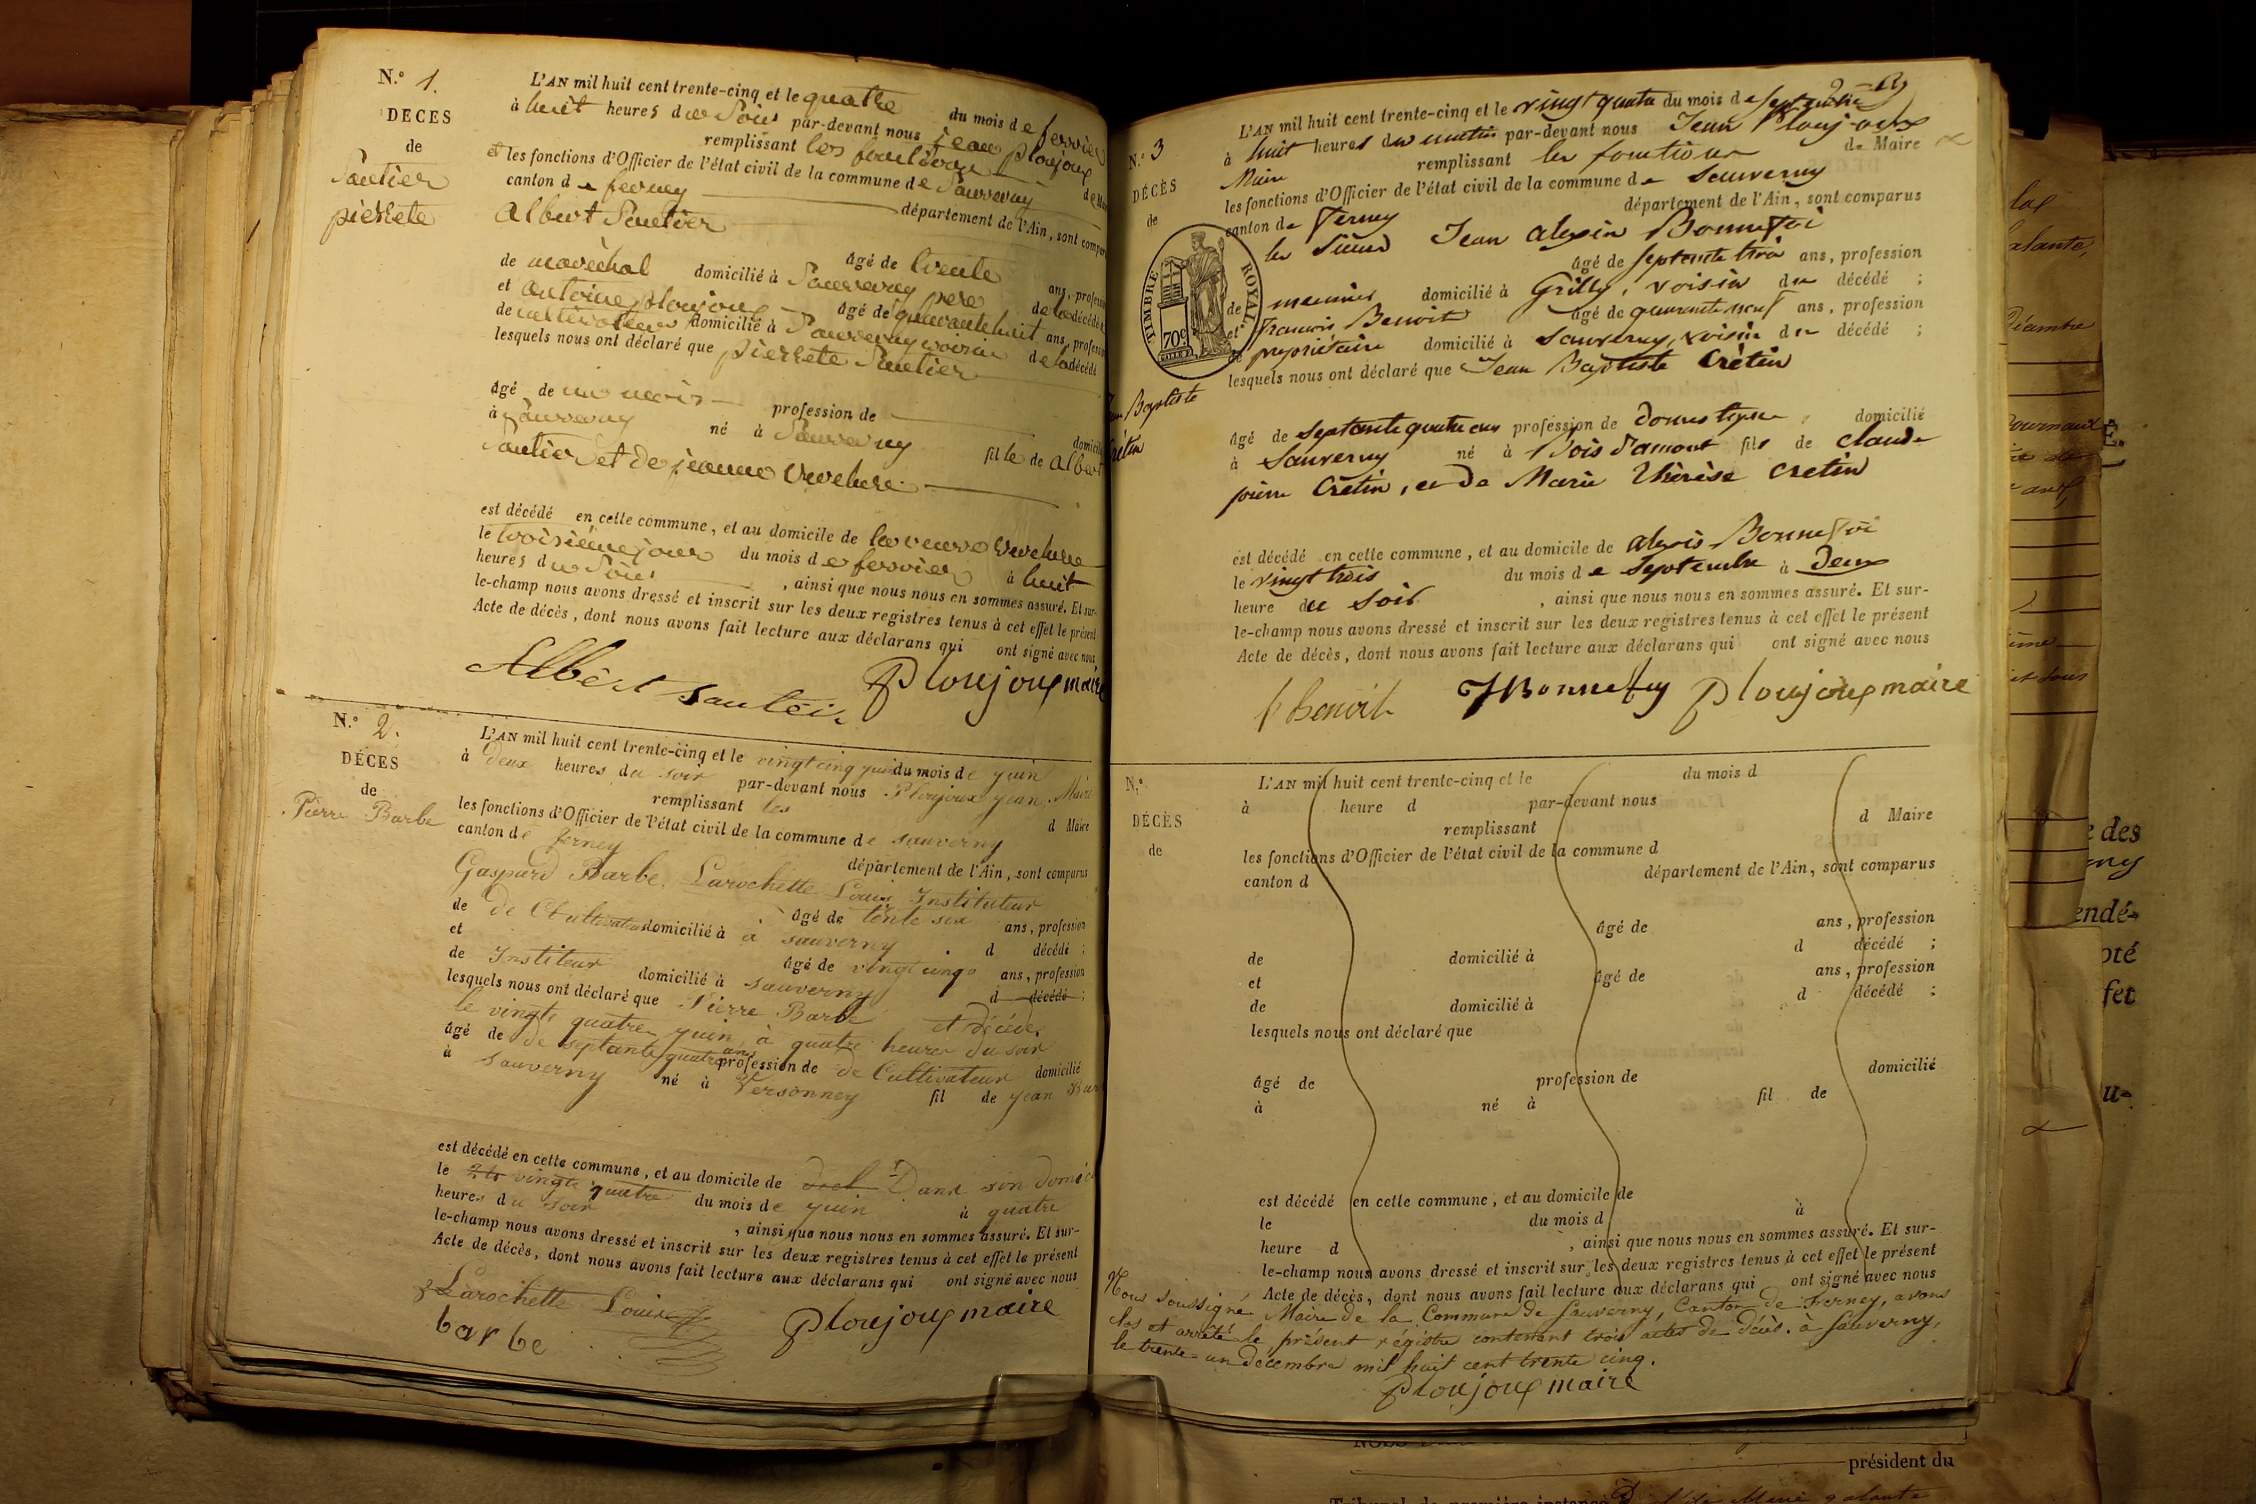 N.° 1.
DECES
de
Sautier
pierrete
L'AN mil huit cent trente-cinq et le quatre du mois de fervier
à huit heures du Soir par-devant nous jean ploujoux
remplissant les fonctions de Maire
et les fonctions d'Officier de l'état civil de la commune de Sauverny
canton de ferney département de l'Ain, sont comparus
Albert Sautier
âgé de trente ans, profession
de maréchal domicilié à Sauverny pere de la décédée
et antoine ploujoux âgé de quarante huit ans, profession
de cultivateur domicilié à Sauverny voisin de la décédé
lesquels nous ont déclaré que pierrete Sautier
âgé de un mois profession de domicilié
à Sauverny né à Sauverny fille de Albert
Sautier et de jeanne
est décédé en cette commune, et au domicile de la veuve
le troisième jour du mois de fervier à huit
heures du Soir , ainsi que nous nous en sommes assuré. Et sur-
le-champ nous avons dressé et inscrit sur les deux registres tenus à cet effet le présent
Acte de décès, dont nous avons fait lecture aux déclarans qui ont signé avec nous
Albert Sautier Ploujoux maire
N.° 2.
DÉCES
de
Pierre Barbe
L'AN mil huit cent trente-cinq et le vingt cinq juin du mois de juin
à deux heures du soir par-devant nous Ploujoux jean Maire
remplissant les d Maire
les fonctions d'Officier de l'état civil de la commune de sauverny
canton de ferney département de l'Ain, sont comparus
Gaspard Barbe. Larochette Louis Instituteur
âgé de trente six ans, profession
de de Cultivateur domicilié à à sauverny d décédé ;
et âgé de vingt cinq ans, profession
de Instituteur domicilié à sauverny d décédé ;
lesquels nous ont déclaré que Pierre Barbe et décéde
le vingt quatre juin à quatre heures du soir
âgé de de septante quatre ans profession de de Cultivateur domicilié
à sauverny né à Versonney fil de jean Bar
est décédé en cette commune, et au domicile de Dans son domici
le vingt quatre du mois de juin à quatre
heures du soir , ainsi que nous nous en sommes assuré. Et sur-
le-champ nous avons dressé et inscrit sur les deux registres tenus à cet effet le présent
Acte de décès, dont nous avons fait lecture aux déclarans qui ont signé avec nous
Larochette Louis
barbe Ploujoux maire
N.° 3
DÉCÈS
de
TIMBRE ROYAL
70c
Jean Baptiste
Crétin
L'AN mil huit cent trente-cinq et le vingt quatre du mois de Septembre
à huit heures du matin par-devant nous Jean Ploujoux
Maire remplissant les fonctions de Maire
les fonctions d'Officier de l'état civil de la commune de Sauverny
canton de Ferney département de l'Ain, sont comparus
les Sieurs Jean alexis Bonnefoi
âgé de septante trois ans, profession
de meunier domicilié à Grilly, voisin du décédé ;
et François Benoit âgé de quarante neuf ans, profession
de propriétaire domicilié à Sauverny, voisin du décédé ;
lesquels nous ont déclaré que Jean Baptiste Crétin
âgé de septante quatre ans profession de domestique domicilié
à Sauverny né à Bois d'amont fils de Claude
pierre Crétin, et de Marie Thérèse Cretin
est décédé en cette commune, et au domicile de alexis Bonnefoi
le vingt trois du mois de Septembre à Deux
heure du Soir , ainsi que nous nous en sommes assuré. Et sur-
le-champ nous avons dressé et inscrit sur les deux registres tenus à cet effet le présent
Acte de décès, dont nous avons fait lecture aux déclarans qui ont signé avec nous
f benoit JBonnefoy Ploujoux maire
N.°
DÉCÈS
de
L'AN mil huit cent trente-cinq et le du mois d
à heure d par-devant nous
remplissant d Maire
les fonctions d'Officier de l'état civil de la commune d
canton d département de l'Ain, sont comparus
âgé de ans, profession
de domicilié à d décédé ;
et âgé de ans, profession
de domicilié à d décédé ;
lesquels nous ont déclaré que
âgé de profession de domicilié
à né à fil de
est décédé en cette commune, et au domicile de
le du mois d à
heure d , ainsi que nous nous en sommes assuré. Et sur-
le-champ nous avons dressé et inscrit sur les deux registres tenus à cet effet le présent
Acte de décès, dont nous avons fait lecture aux déclarans qui ont signé avec nous
Nous soussigné Maire de la Commune de Sauverny, Canton de Ferney, avons
clos et arrêté le présent régistre contenant trois actes de décès. à Sauverny,
le trente-un decembre mil huit cent trente cinq.
Ploujoux maire
président du